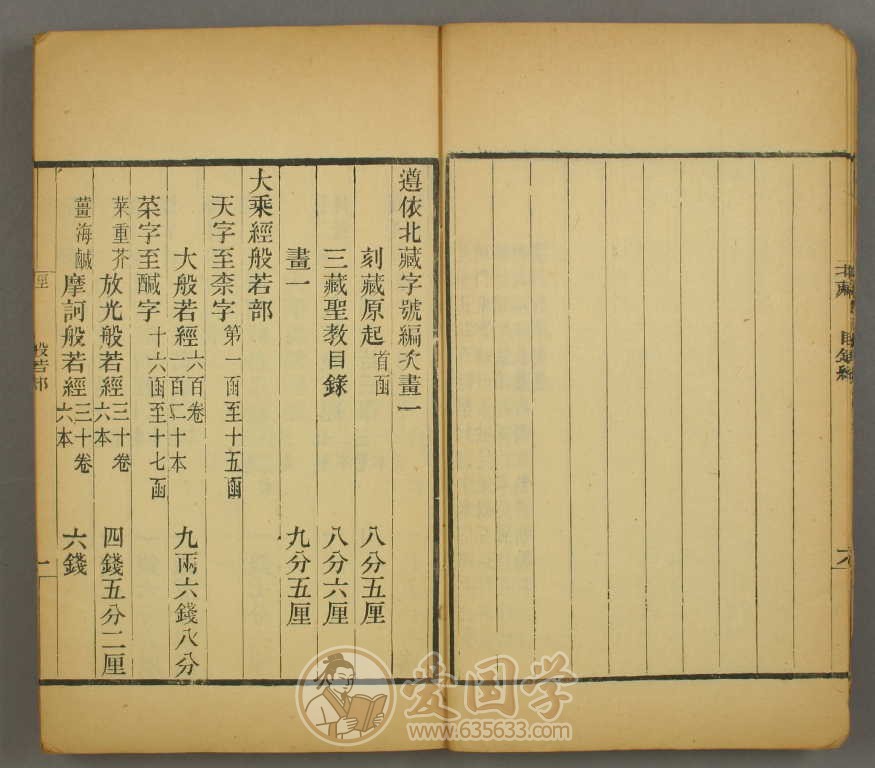 遵依北藏字號編次畫一
刻藏原起 首函 八分五厘
三藏聖教目錄 八分六厘
畫一 九分五厘
大乘經般若部
天字至柰字 第一函至十五函
大般若經 六百卷 一百二十本 九兩六錢八分
菜字至鹹字 十六函至十七函
菜重芥 放光般若經 三十卷 六本 四錢五分二厘
薑海鹹 摩訶般若經 三十卷 六本 六錢
般若部
愛国学
www.635633.com